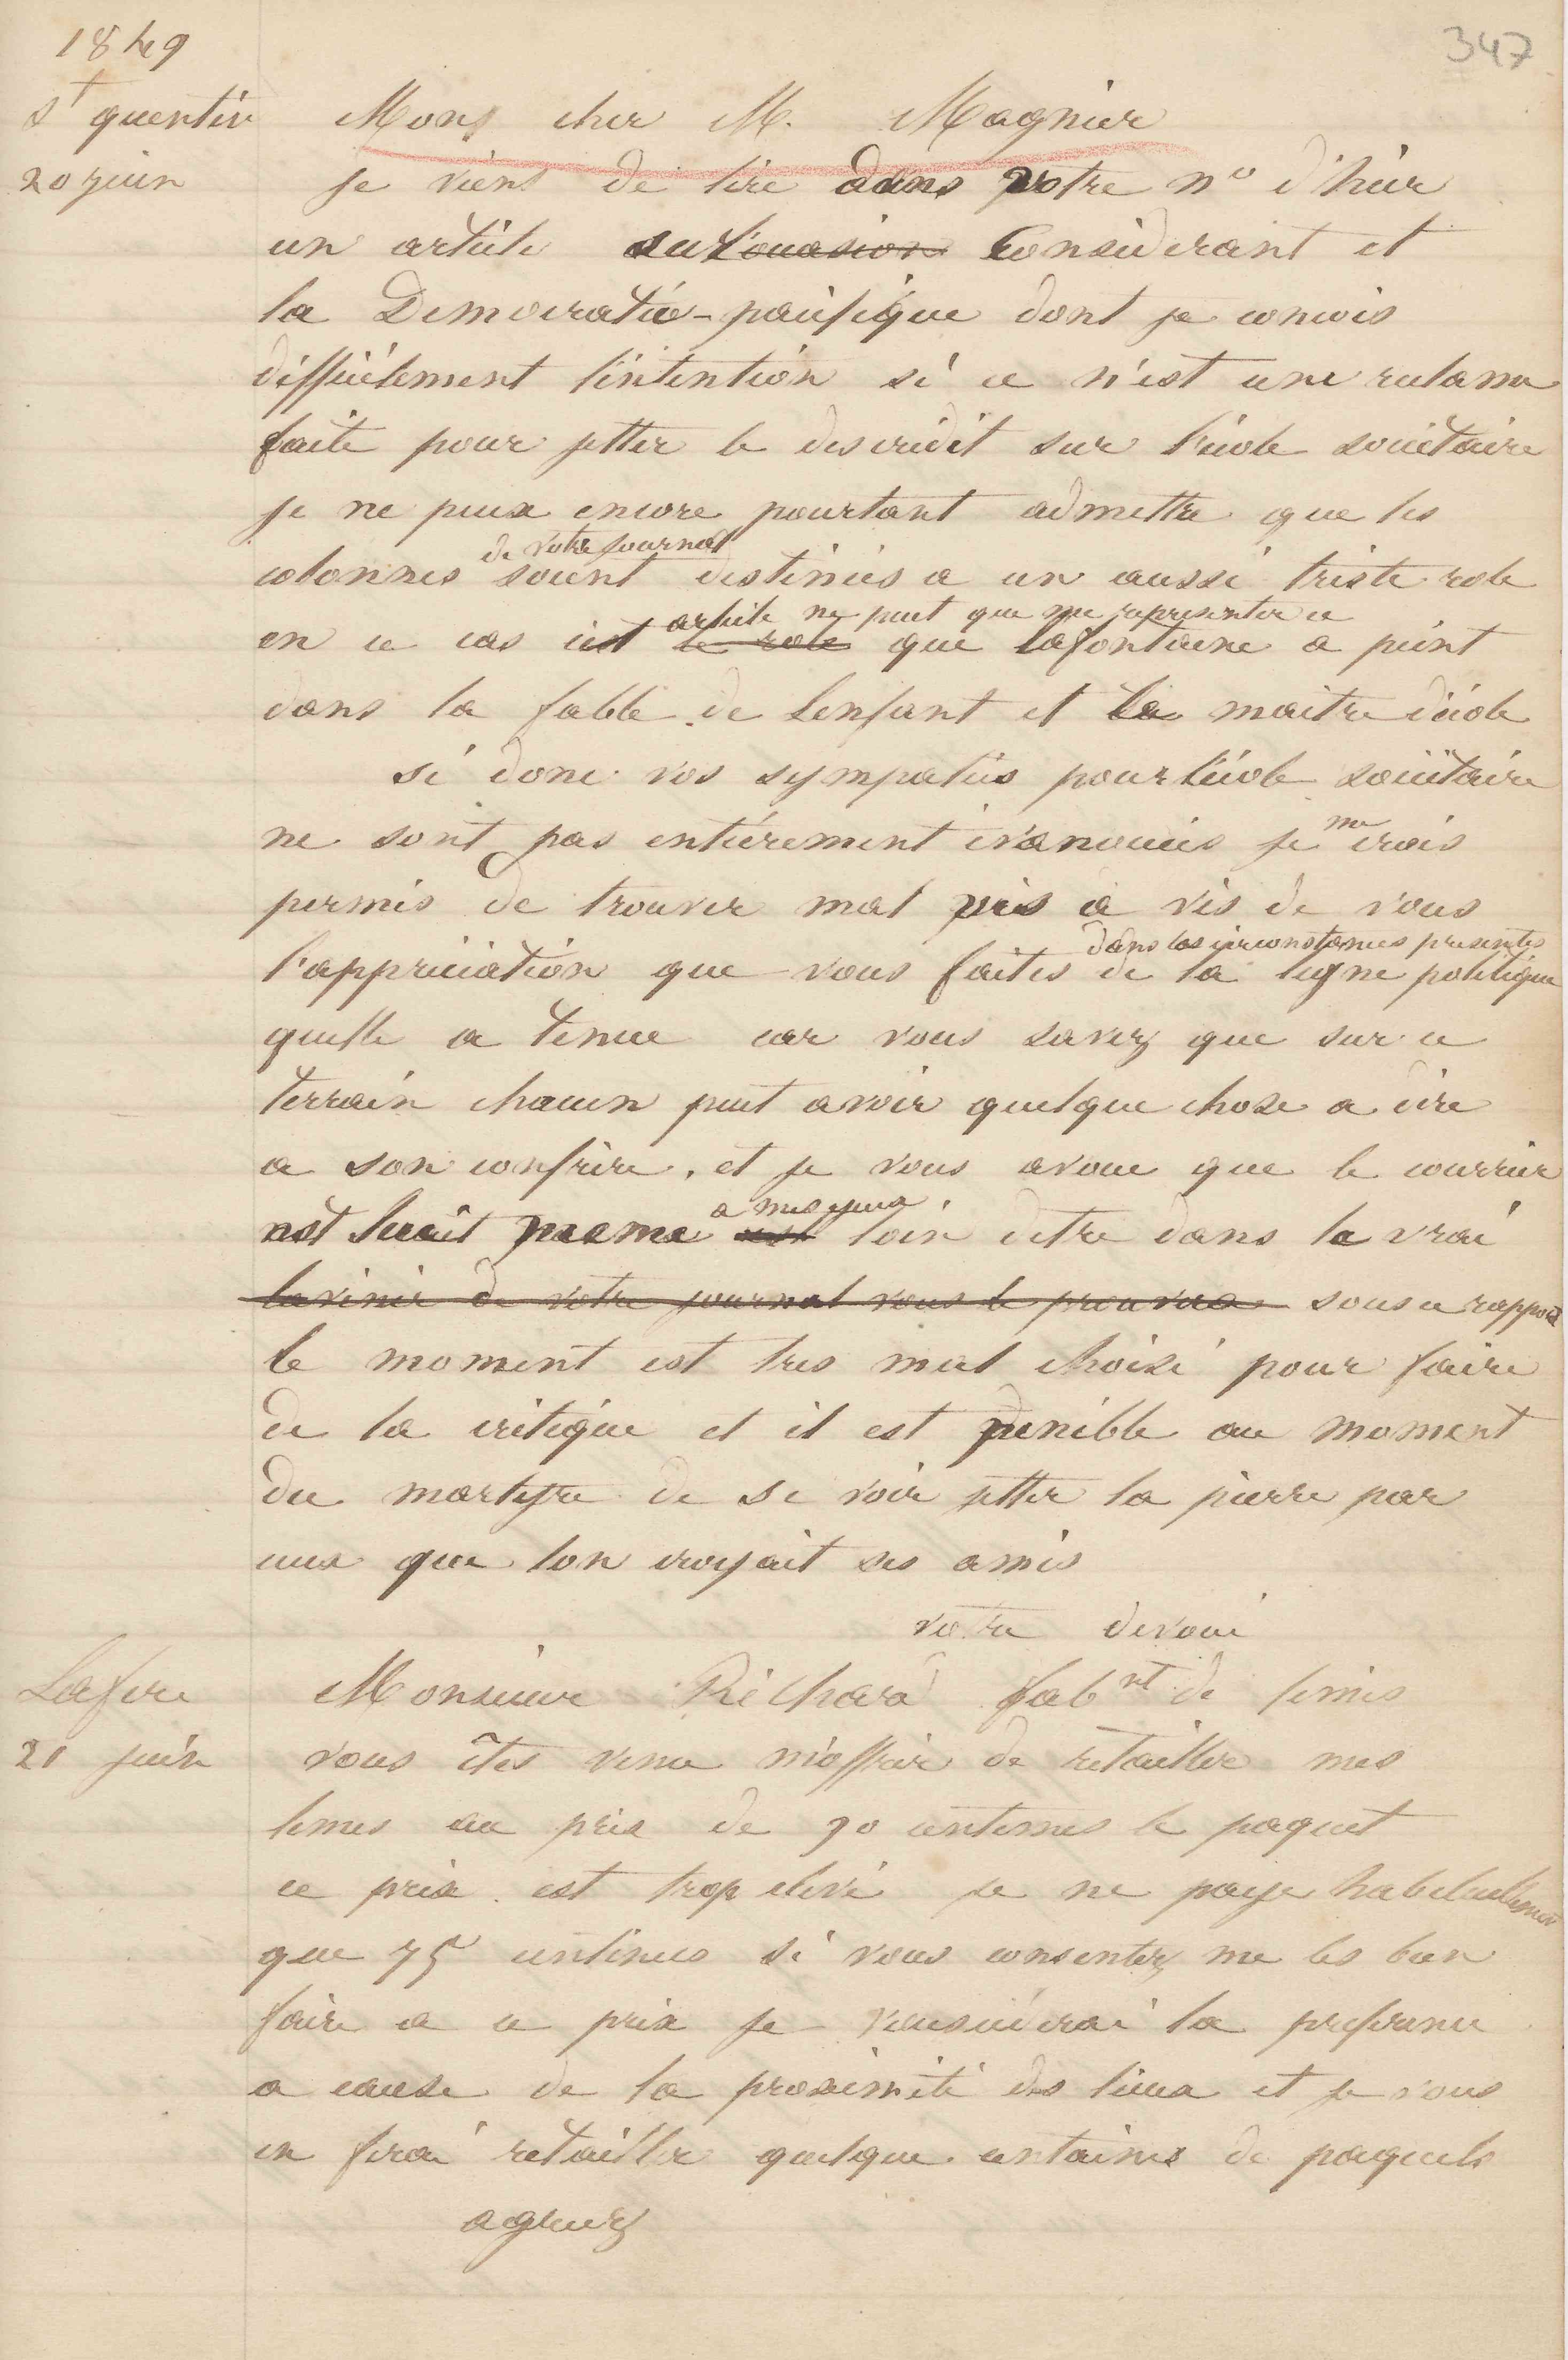 347
1849
St quentin
20 juin
Mons cher M. Magnier
je viens de lire dans votre no d'hier
un article sur l'ocasion Considerant et
la Democratie-pacifique dont je concois
difficilement l'intention si ce n'est une reclame
faite pour jetter le descredit sur l'ecole societaire
je ne peux encore pourtant admettre que les
de votre journal
colonnes soient destinées a un aussi triste role
article ne peut que me representer ce
en ce cas cet le role que lafontaine a peint
dans la fable de lenfant et le maitre d'école
si donc vos sympaties pour l'école sociétaire
me
ne sont pas entiérement évanouies je crois
permis de trouver mal vis a vis de vous
dans les circonstances presentes
l'appréciation que vous faites de la ligne politique
quelle a tenue car vous savez que sur ce
terrain chacun peut avoir quelque chose a dire
a son confrère, et je vous avoue que le courrier
a mes yeux
est loin detre dans le vrai
lavenir de votre journal vous le prouvera sous ce rapport
le moment est tres mal choisi pour faire
de la critique et il est penible au moment
du martyre de se voir jetter la pierre par
ceux que lon croyait ses amis
votre devoué
Lafere
21 juin
Monsieur Richard fabnt de limes
vous êtes venu m'offrir de retailler mes
limes au prix de 90 centimes le paquet
ce prix est trop elevé je ne paye habituellement
que 75 centimes si vous consentez me les bien
faire a ce prix je vous céderai la preference
a cause de la proximité des lieux et je vous
en ferai retailler quelque centaines de paquets
agreez